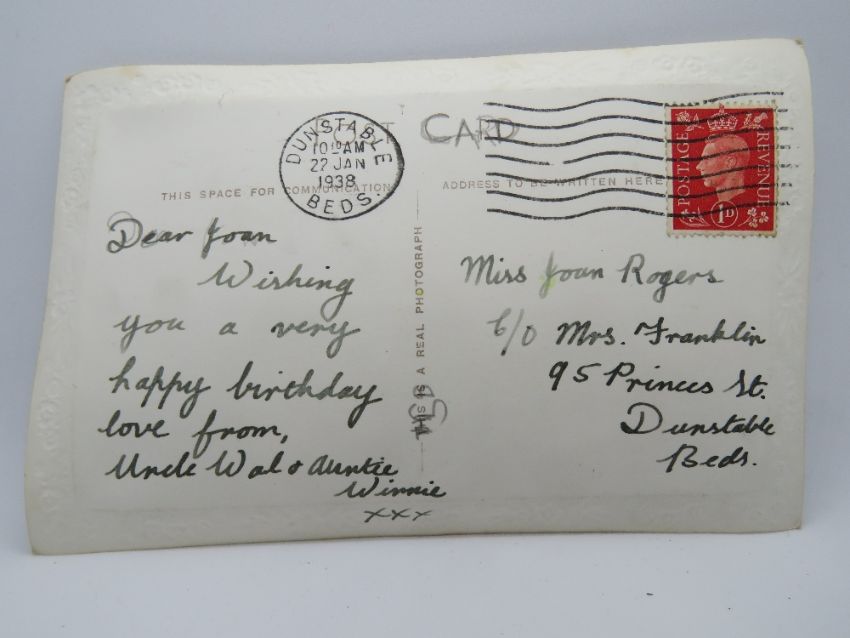 POST CARD
DUNSTABLE
10 AM
22 JAN
1938
BEDS.
POSTAGE
REVENUE
1D
THIS SPACE FOR COMMUNICATION
ADDRESS TO BE WRITTEN HERE
THIS IS A REAL PHOTOGRAPH
Dear Joan
Wishing
you a very
happy birthday
love from,
Uncle Wal & Auntie
Winnie
xxx
Miss Joan Rogers
C/O Mrs. Franklin
95 Princes St.
Dunstable
Beds.